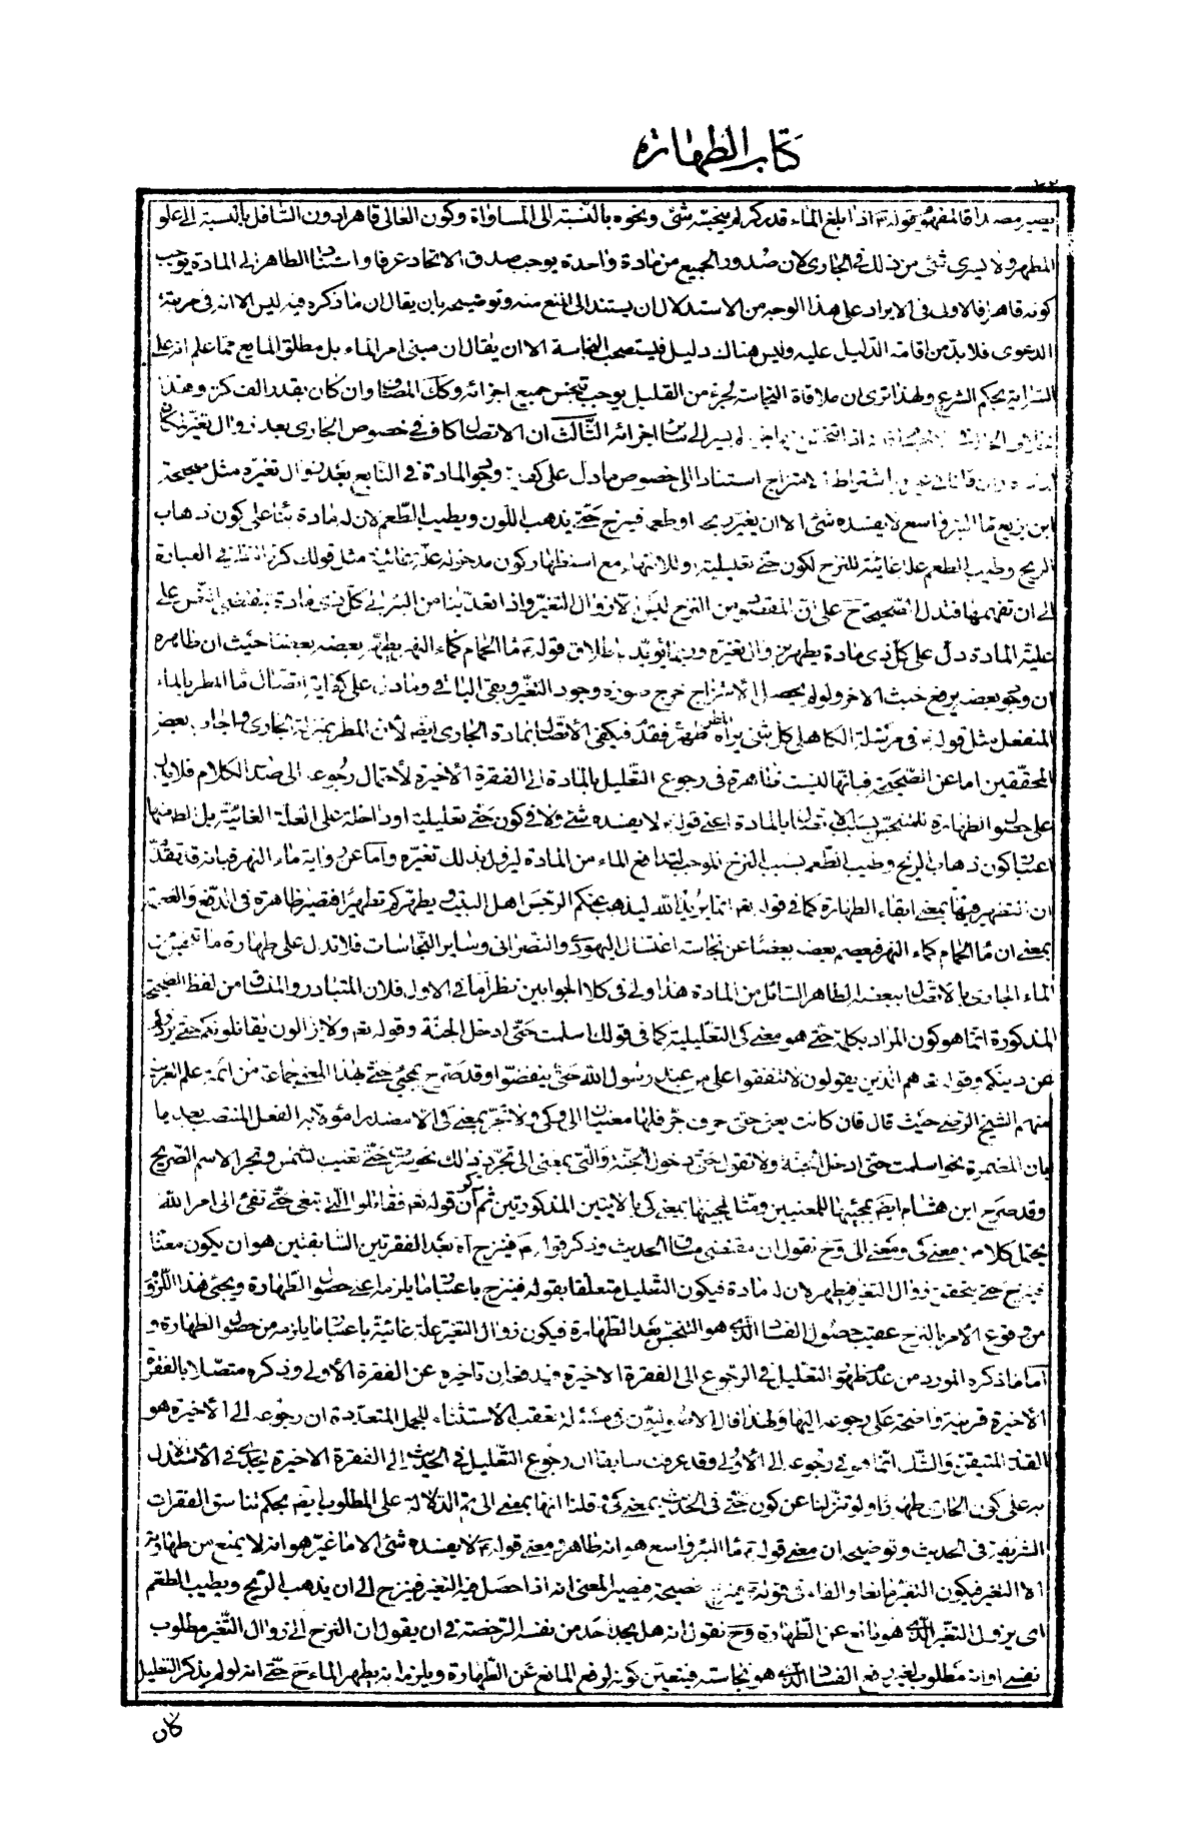 كتاب الطهارة
يصير مصداقا لمفهوم قوله ع اذا بلغ الماء قدر كر لم ينجسه شئ ونحوه بالنسبة الى المساواة وكون العالى قاهرا دون السافل بالنسبة الى علو
المطهر ولا يسرى شئ من ذلك فى الجارى لان صدور الجميع من مادة واحدة يوجب صدق الاتحاد عرفا واستناد الطاهر الى المادة يوجب
كونه قاهرا فالاولى فى الايراد على هذا الوجه من الاستدلال ان يستند الى المنع منه وتوضيحه بان يقال ان ما ذكره فيه ليس الا انه فى مرتبة
الدعوى فلا بد من اقامة الدليل عليه وليس هناك دليل فليستصحب النجاسة الا ان يقال ان مبنى امر الماء بل مطلق المايع مما علم انه على
السراية بحكم الشرع ولهذا ترى ان ملاقاة النجاسة لجزء من القليل يوجب تنجس جميع اجزائه وكك المضاف وان كان بقدر الف كر وهذا
اجزائه الثالث ان الاتصال كاف فى خصوص الجارى بعد زوال تغيره وان
اشتراط الامتزاج استنادا الى خصوص ما دل على كفاية وجود المادة فى النابع بعد زوال تغيره مثل صحيحة
ابن بزيع ماء البئر واسع لا يفسده شئ الا ان يغير ريحه او طعمه فينزح حتى يذهب اللون ويطيب الطعم لان له مادة بناء على كون ذهاب
الريح وطيب الطعم علة غائية للنزح لكون حتى تعليلية او للانتهاء مع استظهار كون مدخوله علة غائية مثل قولك كرر النظر فى العبارة
الى ان تفهمها فتدل الصحيحة ح على ان المقصود من النزح ليس الا زوال التغير واذا تعدينا من البئر الى كل ذى مادة بمقتضى النص على
علية المادة دل على كل ذى مادة يطهر بزوال تغيره وربما يؤيد باطلاق قوله ع ماء الحمام كماء النهر يطهر بعضه بعضا حيث ان ظاهره
ان وجود بعضه يرفع خبث الاخر ولو لم يحصل الامتزاج خرج صورة وجود التغير وبقى الباقى وما دل على كفاية اتصال ماء المطر بالماء
المنفعل مثل قوله ع فى مرسلة الكاهلى كل شئ يراه المطر فقد طهر فيكفى الاتصال بمادة الجارى ايضا لان المطر بمنزلة الجارى واجاب بعض
المحققين اما عن الصحيحة فبانها ليست ظاهرة فى رجوع التعليل بالمادة الى الفقرة الاخيرة لاحتمال رجوعه الى صدر الكلام فلا يدل
على حصول الطهارة للمتنجس بسبب الاتصال بالمادة اعنى قوله لا يفسده شئ ولا فى كون حتى تعليلية او داخلة على العلة الغائية بل الظاهر منها
اعتبار كون ذهاب الريح وطيب الطعم بسبب النزح الموجب لتدافع الماء من المادة ليزول بذلك تغيره واما عن رواية ماء النهر فبانه قد يقال
ان التطهير فيها بمعنى ابقاء الطهارة كما فى قوله تعالى انما يريد الله ليذهب عنكم الرجس اهل البيت ويطهركم تطهيرا فيصير ظاهرة فى الدفع والعصمة
بمعنى ان ماء الحمام كماء النهر فيعصم بعضه بعضا عن نجاسة اغتسال اليهودى والنصرانى وساير النجاسات فلا تدل على طهارة ما تنجس من
الماء الجارى بالاتصال ببعضه الطاهر السائل من المادة هذا ولى فى كلا الجوابين نظر اما فى الاول فلان المتبادر والمنساق من لفظ الصحيحة
المذكورة انما هو كون المراد بكلمة حتى هو معنى كى التعليلية كما فى قولك اسلمت حتى ادخل الجنة وقوله تعالى ولا يزالون يقاتلونكم حتى يردوكم
عن دينكم وقوله تعالى هم الذين يقولون لا تنفقوا على من عند رسول الله حتى ينفضوا وقد صرح بمجئ حتى لهذا المعنى جماعة من ائمة علم العربية
منهم الشيخ الرضى حيث قال فان كانت يعنى حتى حرف جر فلها معنيان الى وكى ولا تجر بمعنى كى الا مصدرا مؤولا به الفعل المنتصب بعدها
بان المضمرة نحو اسلمت حتى ادخل الجنة ولا تقول حتى دخول الجنة والتى بمعنى الى تجر ذلك نحو سرت حتى تغيب الشمس وتجر الاسم الصريح
وقد صرح ابن هشام ايضا بمجيئها للمعنيين ومثل لمجيئها بمعنى كى بالايتين المذكورتين ثم ذكر ان قوله تعالى فقاتلوا التى تبغى حتى تفئ الى امر الله
يحتمل كلا من معنى كى ومعنى الى وح نقول ان مقتضى مساق الحديث وذكر قوله ع فينزح اه بعد الفقرتين السابقتين هو ان يكون معناه
فينزح حتى يتحقق زوال التغير فيطهر لان له مادة فيكون التعليل متعلقا بقوله فينزح باعتبار ما يلزمه اعنى حصول الطهارة ويجئ هذا اللزوم
من وقوع الامر بالنزح عقيب حصول الفساد الذى هو التنجس بعد الطهارة فيكون زوال التغير علة غائية باعتبار ما يلزمه من حصول الطهارة و
اما ما ذكره المورد من عدم ظهور التعليل فى الرجوع الى الفقرة الاخيرة فيدفعه ان تاخيره عن الفقرة الاولى وذكره متصلا بالفقرة
الاخيرة قرينة واضحة على رجوعه اليها ولهذا قال الاصوليون فى مسئلة تعقب الاستثناء للجمل المتعددة ان رجوعه الى الاخيرة هو
القدر المتيقن والشك انما هو فى رجوعه الى الاولى وقد عرفت سابقا ان رجوع التعليل فى الحديث الى الفقرة الاخيرة يجدى فى الاستدلال
به على كون الجارى طهورا ولو تنزلنا عن كون حتى فى الحديث بمعنى كى قلنا انها بمعنى الى تتم الدلالة على المطلوب ايضا بحكم تناسق الفقرات
الشريفة فى الحديث وتوضيحه ان معنى قوله ع ماء البئر واسع هو انه طاهر ومعنى قوله ع لا يفسده شئ الا ما غير هو انه لا يمنع من طهارته
الا التغير فيكون التغير مانعا والفاء فى قوله فينزح فصيحة فيصير المعنى انه اذا حصل فيه التغير فينزح الى ان يذهب الريح ويطيب الطعم
اى يزول التغير الذى هو مانع عن الطهارة وح نقول انه هل يجد احد من نفسه الرخصة فى ان يقول ان النزح الى زوال التغير مطلوب
نفسى او انه مطلوب لغير رفع الفساد الذى هو نجاسته فيتعين كونه لرفع المانع عن الطهارة ويلزمه انه يطهر الماء ح حتى انه لو لم يذكر التعليل
كان